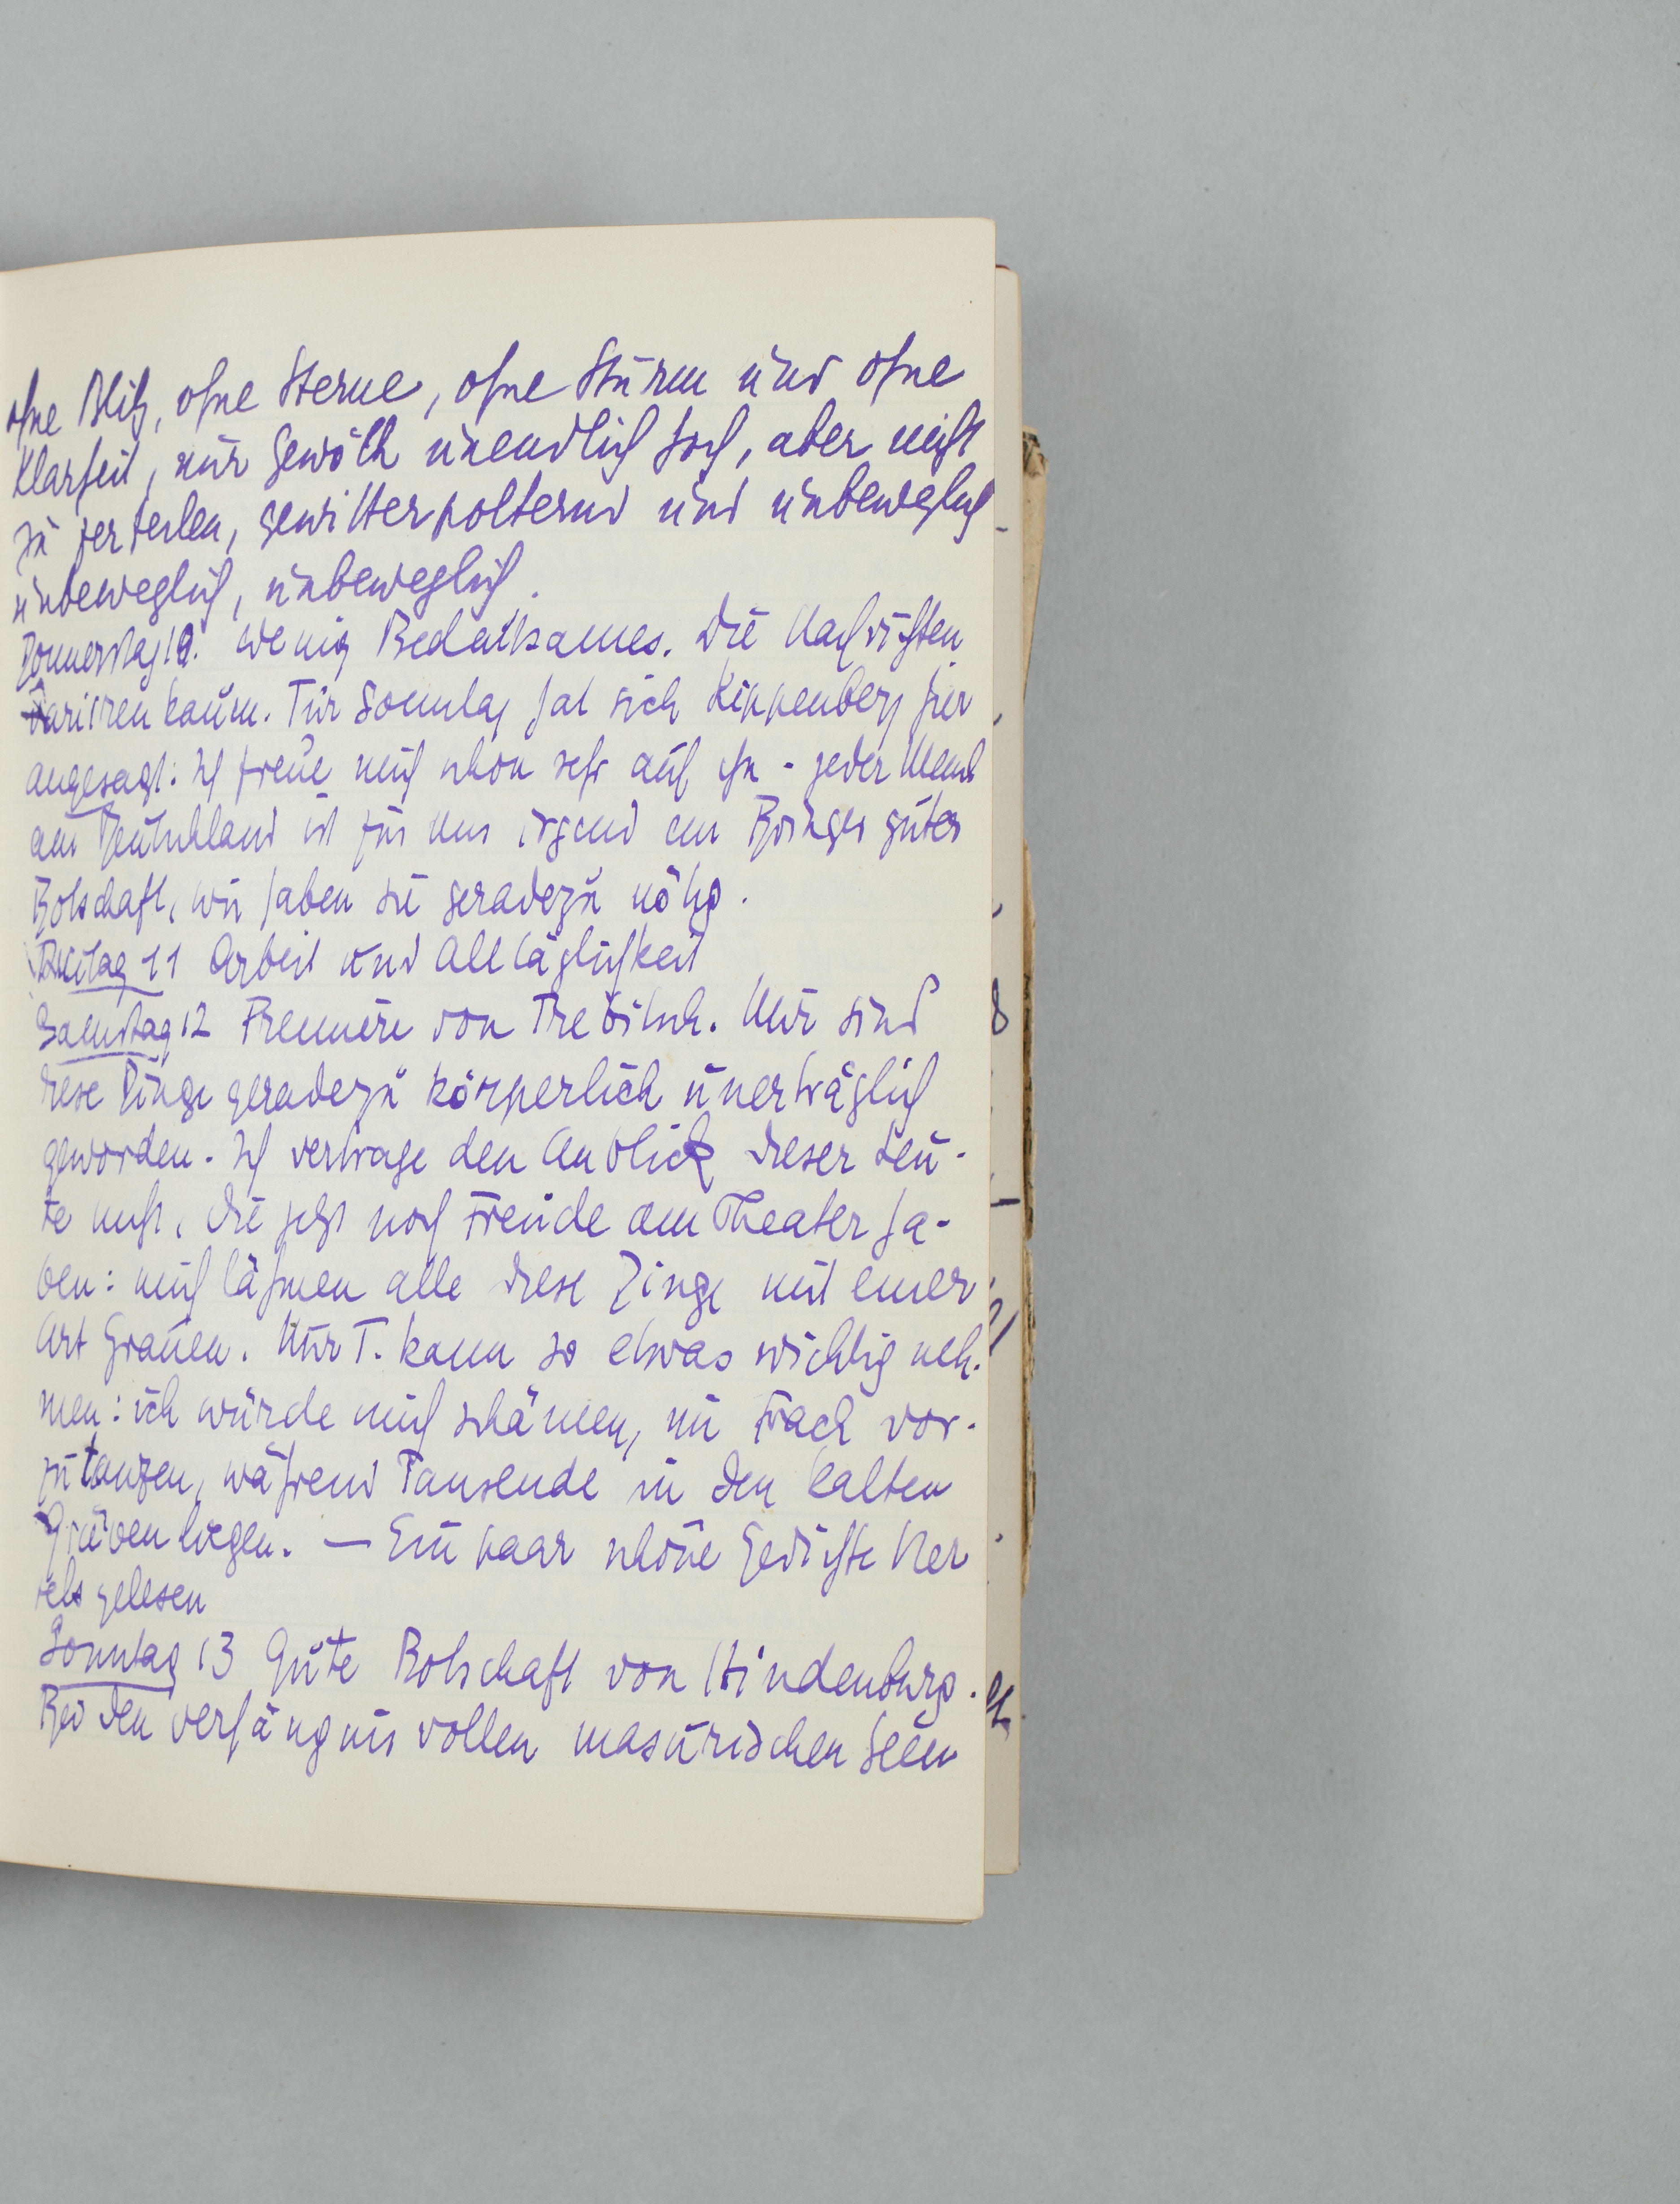 ohne Blitz, ohne Sterne, ohne Sturm und ohne
Klarheit, nur Gewölk unendlich hoch, aber nicht
zu zerteilen, gewitterpolternd und unbeweglich
unbeweglich, unbeweglich.
Donnerstag 10. Wenig Bedeutsames. Die Nachrichten
variiren kaum. Für Sonntag hat sich Kippenberg hier
angesagt: Ich freue mich schon sehr auf ihn - jeder Mensch
aus Deutschland ist für uns irgend ein Bringer guter
Botschaft, wir haben sie geradezu nötig.
Freitag 11 Arbeit und Alltäglichkeit
Samstag 12 Premiere von Trebitsch. Mir sind
diese Dinge geradezu körperlich unerträglich
geworden. Ich vertrage den Anblick dieser Leu-
te nicht, die jetzt noch Freude am Theater ha-
ben: mich lähmen alle diese Dinge mit einer
Art Grauen. Nur T. kann so etwas wichtig neh-
men: ich würde mich schämen, im Frack vor-
zutanzen, während Tausende in den kalten
Gräben liegen. — Ein paar schöne Gedichte Wer
fels gelesen
Sonntag 13 Gute Botschaft von Hindenburg.
Bei den verhängnisvollen masurischen Seen